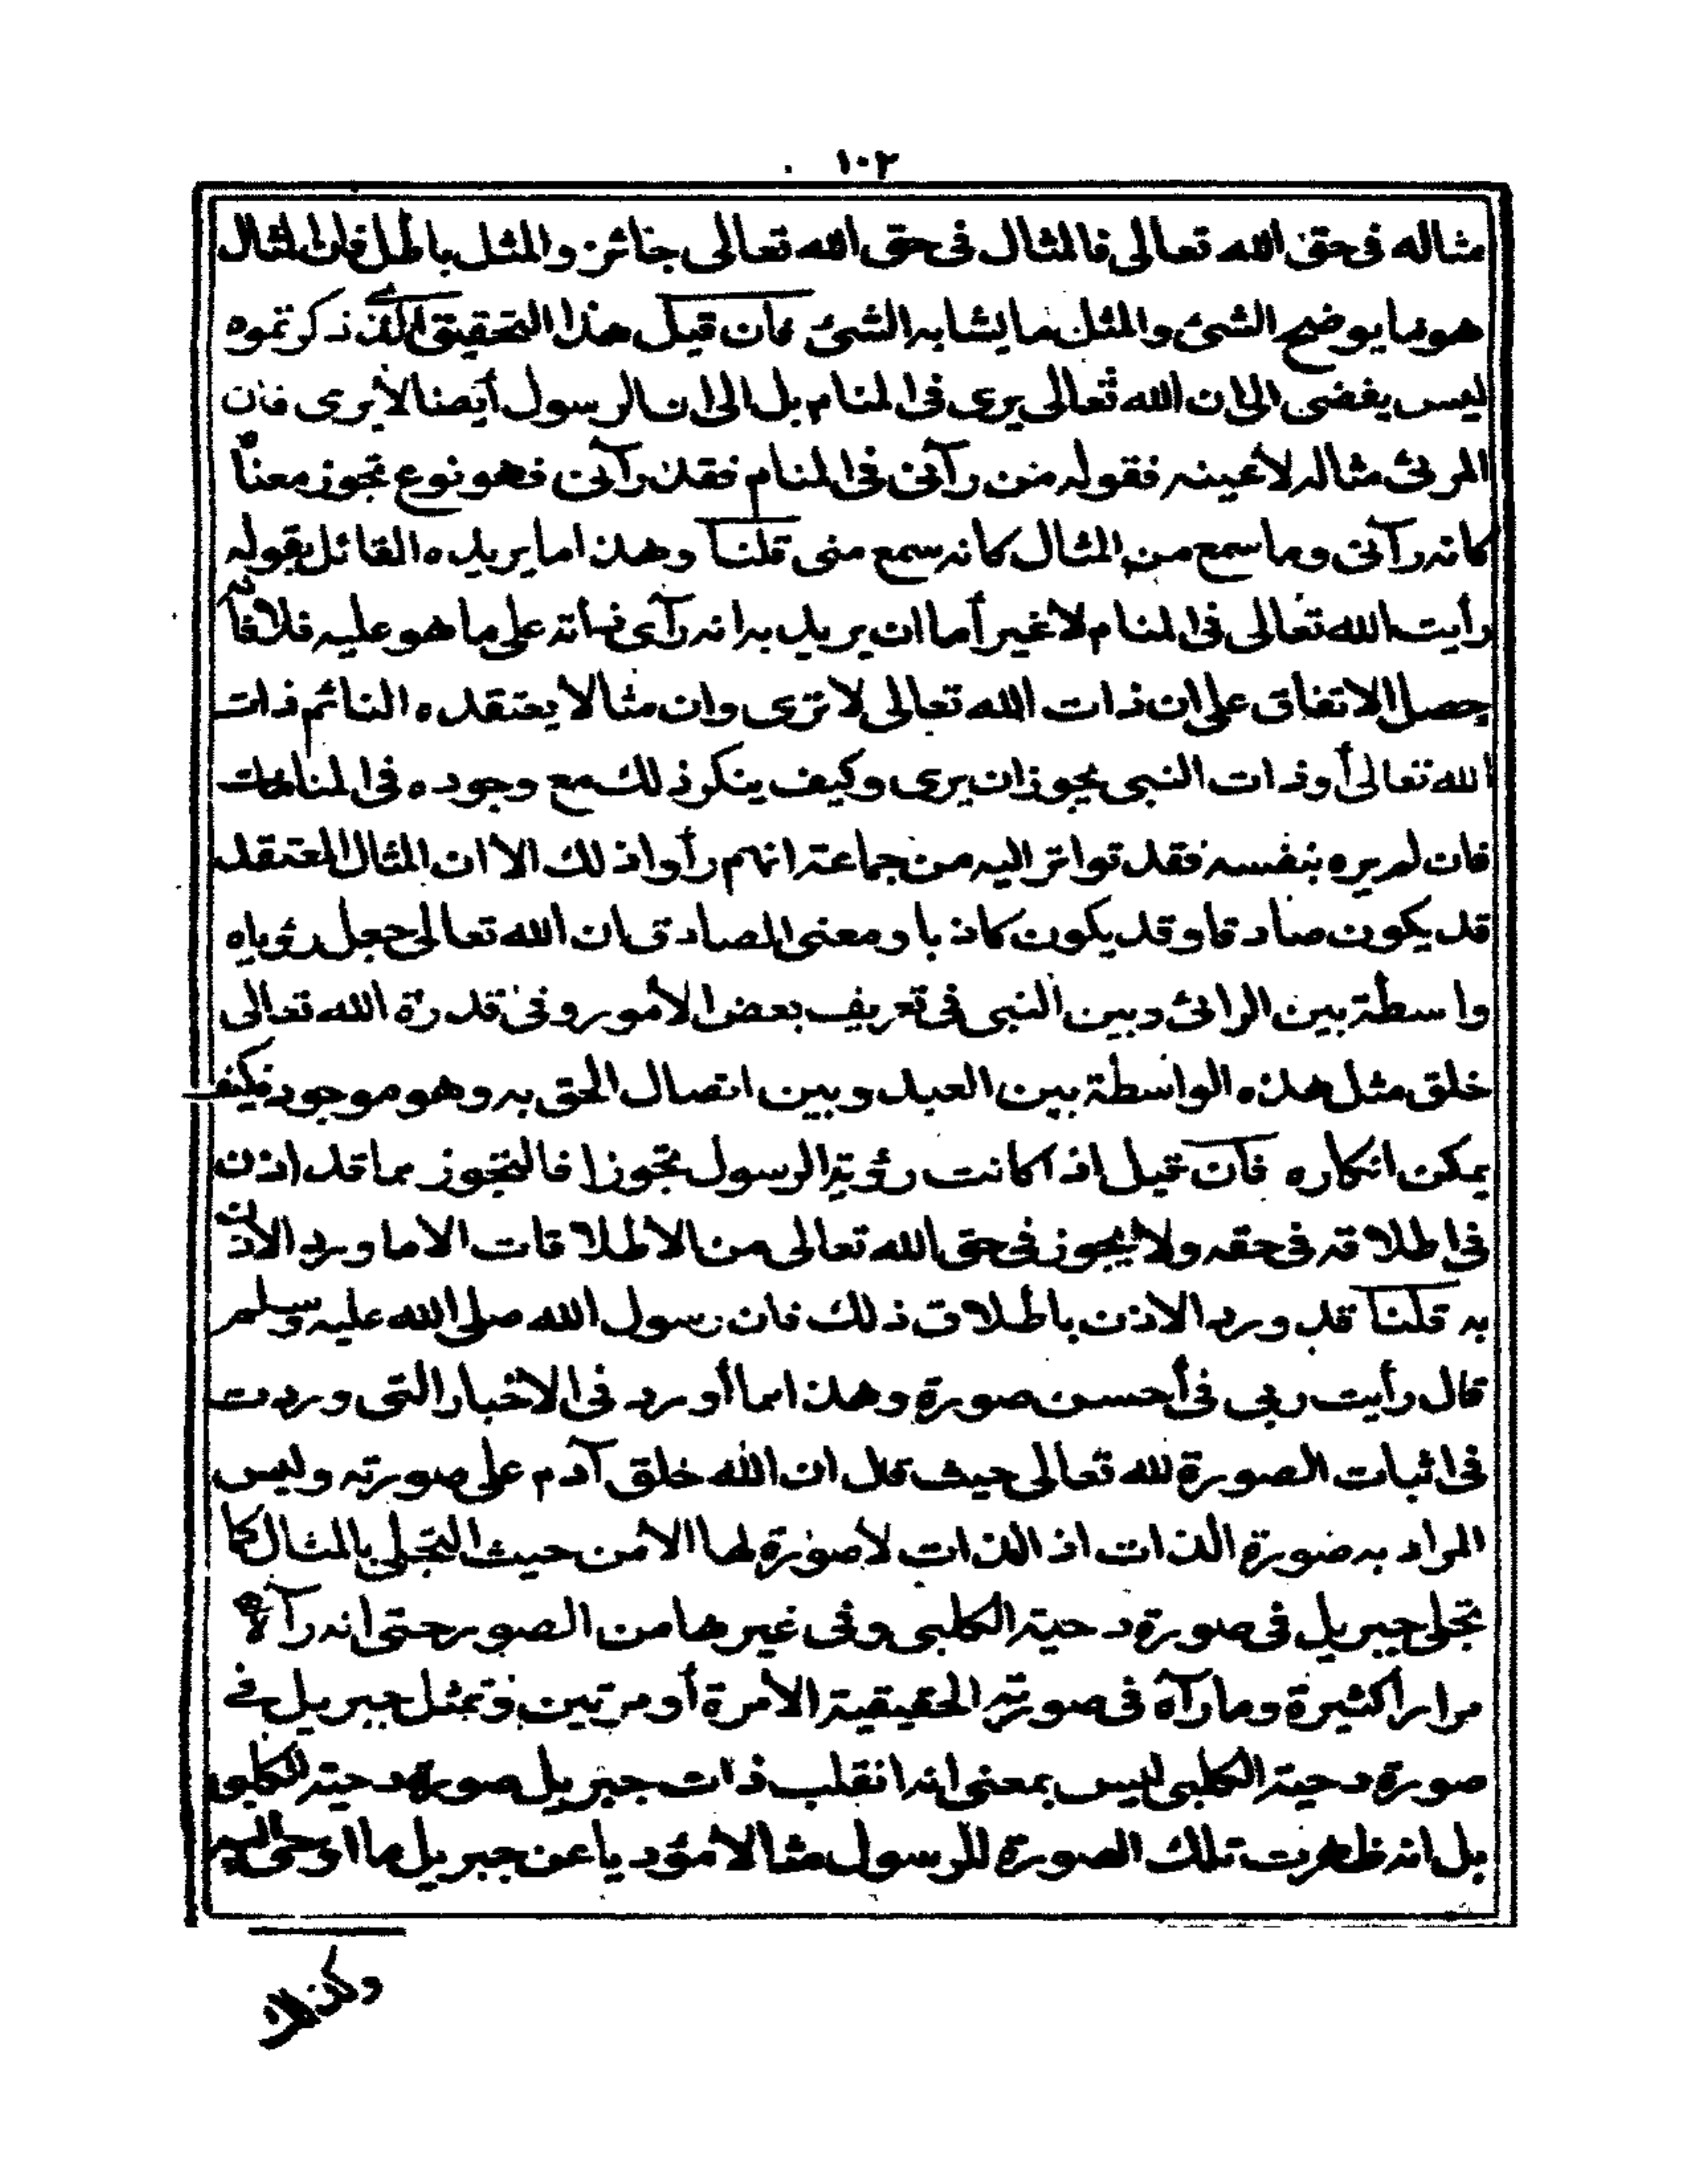 ١٠٢
مثاله فى حق الله تعالى فالمثال فى حق الله تعالى جائز والمثل باطل فان المثال
هو ما يوضح الشئ والمثل ما يشابه الشئ فان قيل هذا التحقيق الذى ذكرتموه
ليس يفضى الى ان الله تعالى يرى فى المنام بل الى ان الرسول أيضا لا يرى فان
المرئ مثاله لا عينه فقوله من رآنى فى المنام فقد رآنى فهو نوع تجوز معناه
كانه رآنى وما سمع من المثال كانه سمع منى قلنا وهذا ما يريده القائل بقوله
رأيت الله تعالى فى المنام لا غير أما ان يريد به انه رآى ذاته على ما هو عليه فلا فانه
حصل الاتفاق على ان ذات الله تعالى لا ترى وان مثالا يعتقده النائم ذات
الله تعالى أو ذات النبى يجوز ان يرى وكيف ينكر ذلك مع وجوده فى المنامات
فان لم يره بنفسه فقد تواتر اليه من جماعة انهم رأوا ذلك الا ان المثال المعتقد
قد يكون صادقا وقد يكون كاذبا ومعنى الصادق ان الله تعالى جعل رؤياه
واسطة بين الرائى وبين النبى فى تعريف بعض الأمور وفى قدرة الله تعالى
خلق مثل هذه الواسطة بين العبد وبين اتصال الحق به وهو موجود فكيف
يمكن انكاره فان قيل اذا كانت رؤية الرسول تجوزا فالتجوز مما قد اذن
فى اطلاقه فى حقه ولا يجوز فى حق الله تعالى من الاطلاقات الا ما ورد الاذن
به قلنا قد ورد الاذن باطلاق ذلك فان رسول الله صلى الله عليه وسلم
قال رأيت ربى فى أحسن صورة وهذا مما أورد فى الاخبار التى وردت
فى اثبات الصورة لله تعالى حيث قال ان الله خلق آدم على صورته وليس
المراد به صورة الذات اذ الذات لا صورة لها الا من حيث التجلى بالمثال كما
تجلى جبريل فى صورة دحية الكلبى وفى غيرها من الصور حتى انه رآه
مرارا كثيرة وما رآه فى صورته الحقيقية الا مرة أو مرتين وتمثل جبريل فى
صورة دحية الكلبى ليس بمعنى انه انقلب ذات جبريل صورة دحية الكلبى
بل انه ظهرت تلك الصورة للرسول مثالا مؤديا عن جبريل ما اوحى اليه
وكذلك